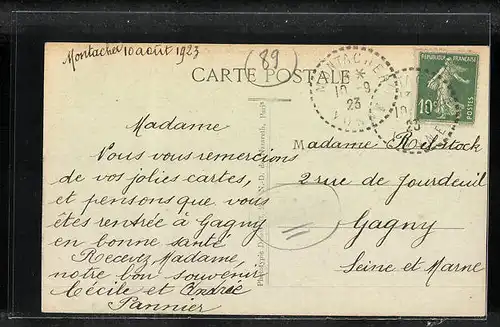 Montacher 10 août 1923
89
CARTE POSTALE
MONTACHER
10 - 9
23
YONNE
RÉPUBLIQUE FRANÇAISE
10c
POSTES
Madame
Vous vous remercions
de vos jolies cartes,
et pensons que vous
êtes rentrée à Gagny
en bonne santé
Recevez Madame,
notre bon souvenir
Cécile et Andrée
Pannier
Madame
2 rue de
Gagny
Seine et Marne